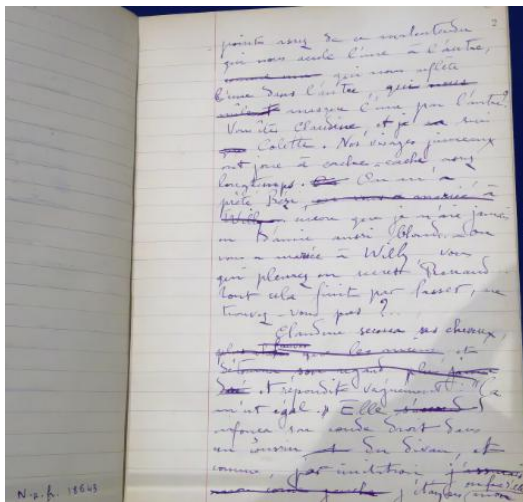 2
points assez de ce malentendu
qui nous accule l'une à l'autre,
qui nous reflète
l'une dans l'autre, qui nous
masque l'une par l'autre?
Vous êtes Claudine, et je ne suis
que Colette. Nos visages jumeaux
ont joué à cache-cache assez
longtemps. On m'a
prêté Rézi, on vous a mariée à
Willy encore que je n'aie jamais
eu d'amie aussi blonde. On
vous a mariée à Willy, vous
qui pleurez en secret Renaud.
Tout cela finit par lasser, ne
trouvez-vous pas?
Claudine secoua ses cheveux,
plus que les miens, et
détourna son regard plus
et répondit vaguement: "Ça
m'est égal." Elle
enfonça son coude droit dans
un coussin du divan, et
comme, par imitation
mon coude gauche
N.a.fr. 18643